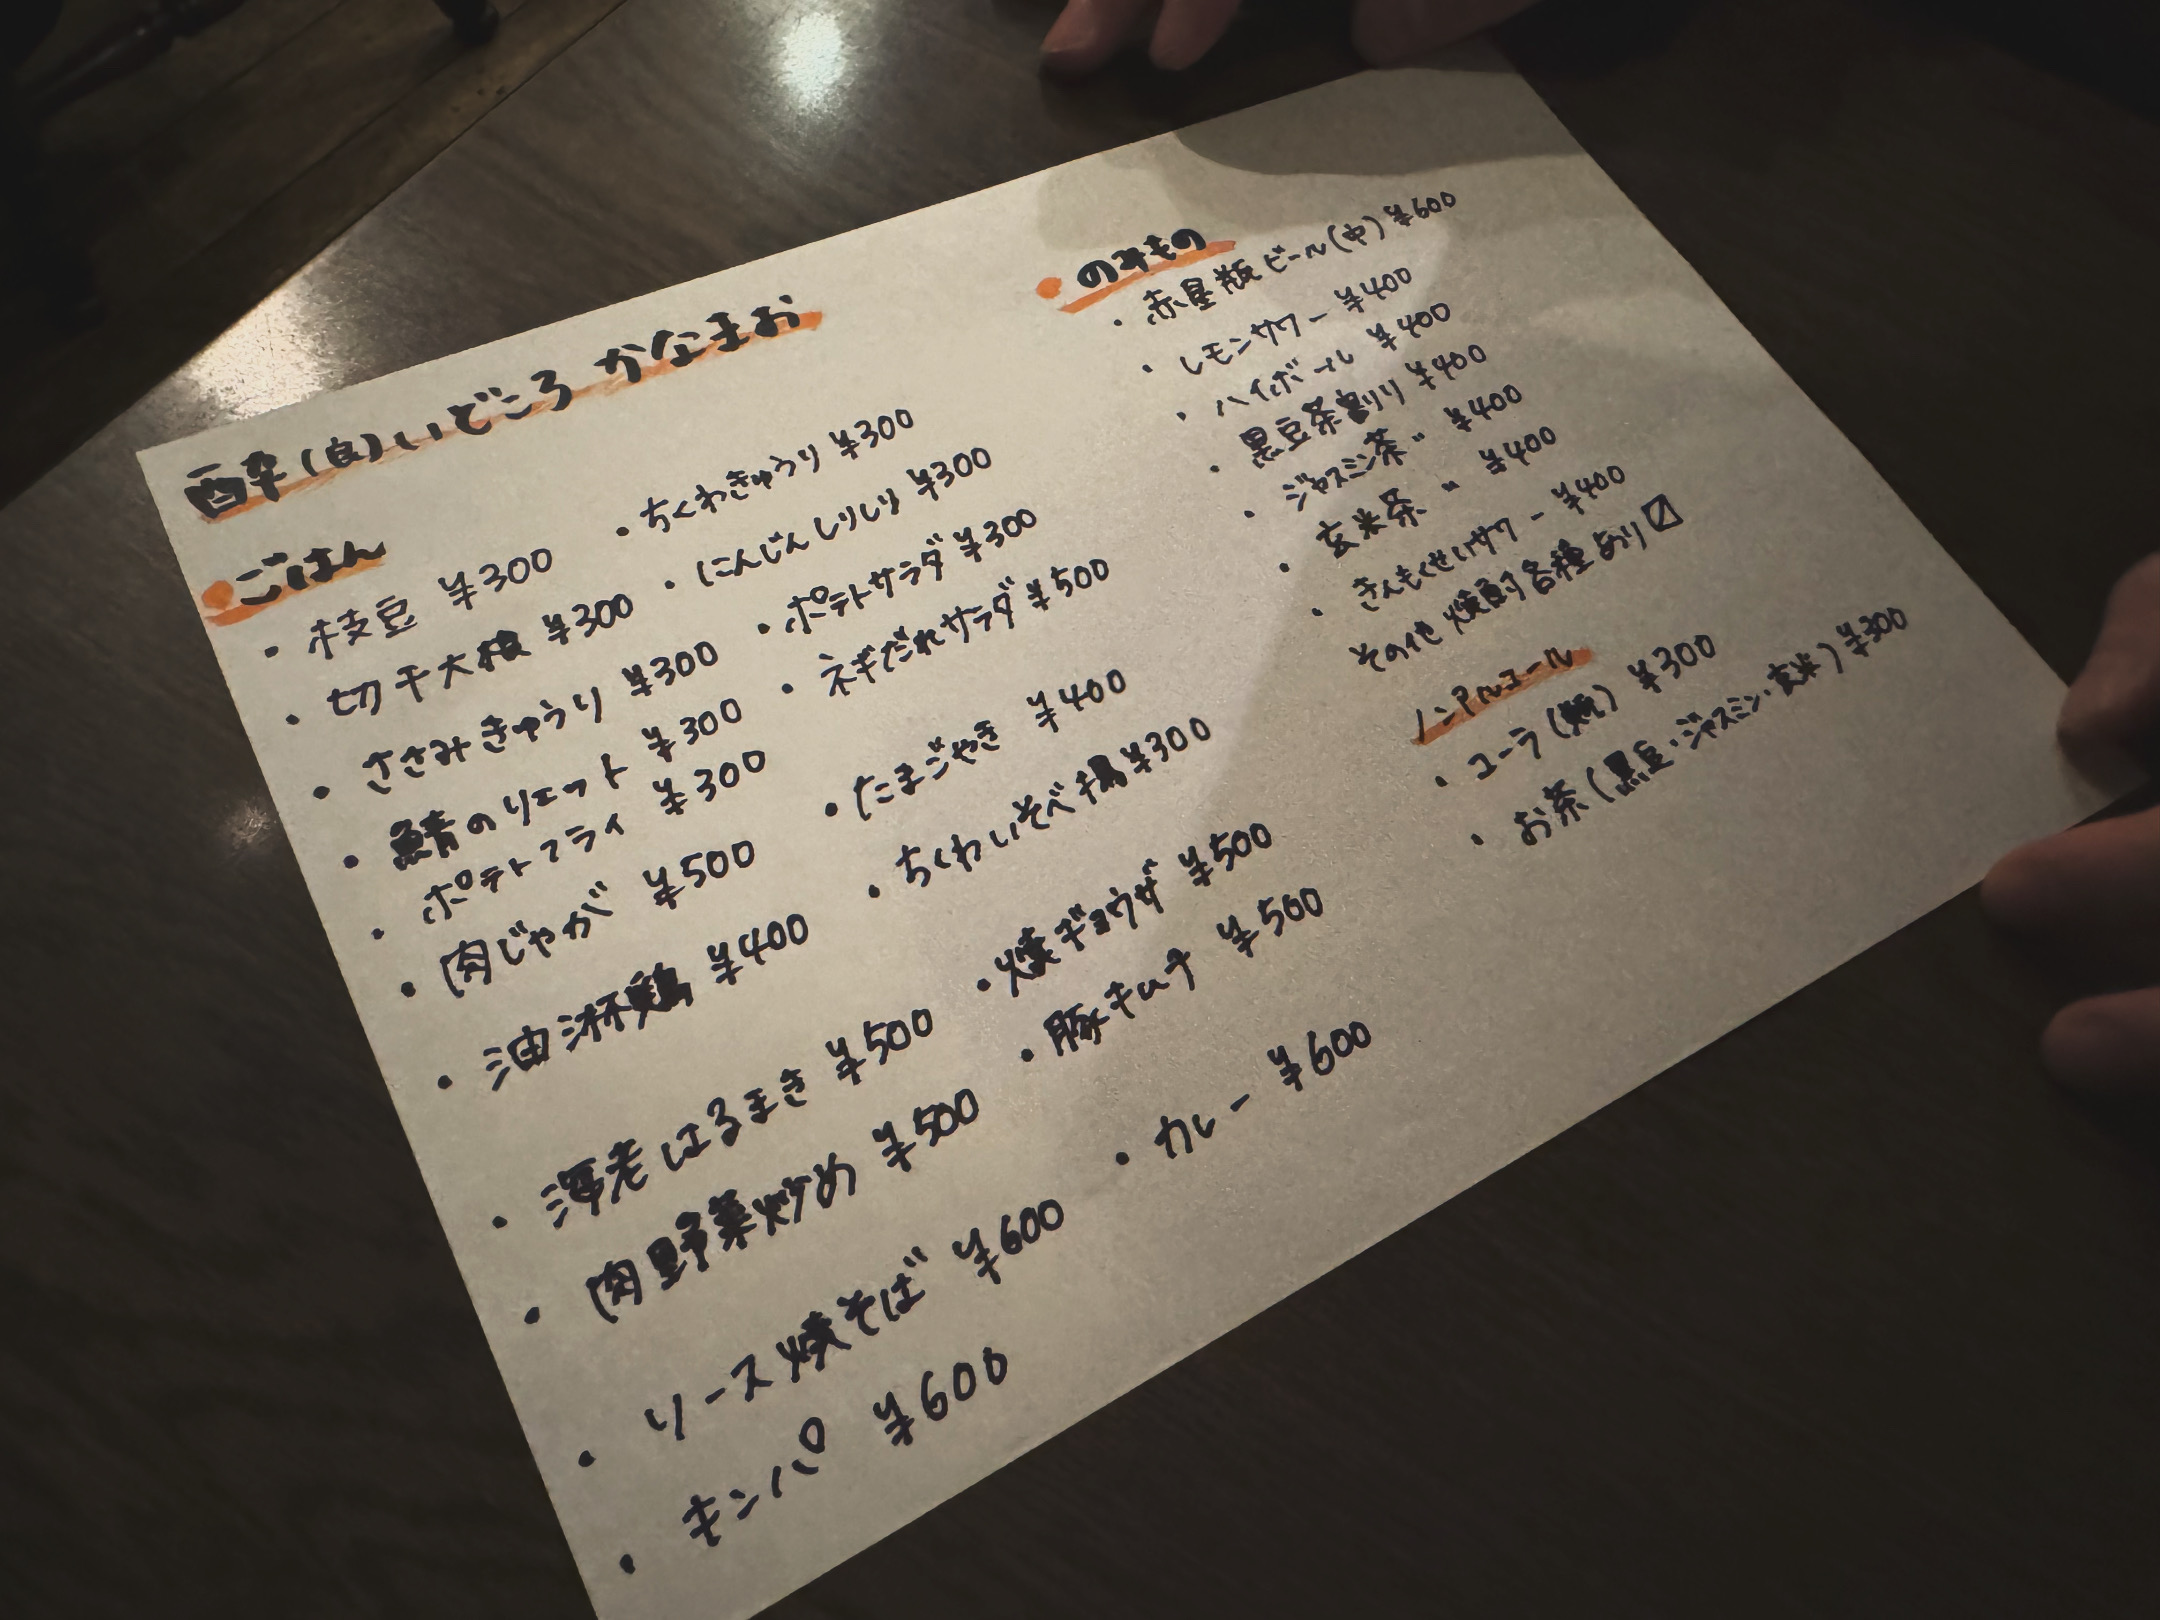 酔(良)いどころ かなまお
・ごはん
・枝豆 ¥300
・切干大根 ¥300
・ささみきゅうり ¥300
・鯖のリエット ¥300
・ポテトフライ ¥300
・肉じゃが ¥500
・油淋鶏 ¥400
・海老はるまき ¥500
・肉野菜炒め ¥500
・ソース焼そば ¥600
・キンパ ¥600
・ちくわきゅうり ¥300
・にんじんしりしり ¥300
・ポテトサラダ ¥300
・ネギだれサラダ ¥500
・たまごやき ¥400
・ちくわいそべ揚 ¥300
・焼ギョウザ ¥500
・豚キムチ ¥500
・カレー ¥600
・のみもの
・赤星瓶ビール(中) ¥600
・レモンサワー ¥400
・ハイボール ¥400
・黒豆茶割り ¥400
・ジャスミン茶〃 ¥400
・玄米茶 〃 ¥400
・きんもくせいサワー ¥400
その他 焼酎各種あり〼
ノンアルコール
・コーラ(瓶) ¥300
・お茶(黒豆・ジャスミン・玄米) ¥300